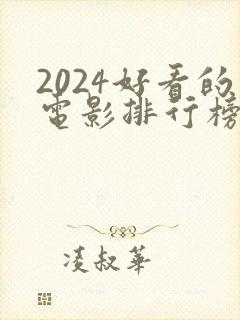 2024好看的
电影排行榜
凌叔华